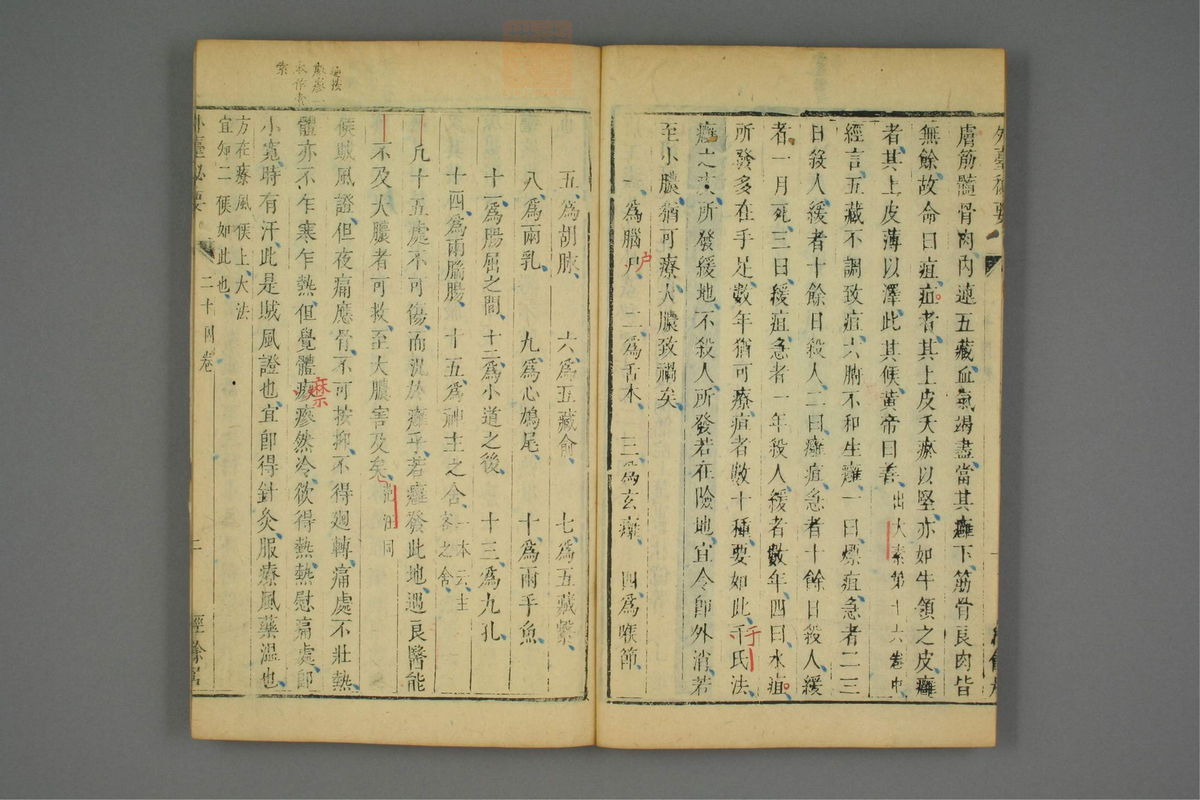 外臺秘要
膚筋髓骨肉內連五藏血氣竭盡當其癰下筋骨良肉皆
無餘故命曰疽疽者其上皮夭瘀以堅亦如牛領之皮癰
者其上皮薄以澤此其候黃帝曰善出大素第十六卷中
經言五藏不調致疽六腑不和生癰一曰熛疽急者二三
日殺人緩者十餘日殺人二曰癰疽急者十餘日殺人緩
者一月死三曰緩疽急者一年殺人緩者數年四曰水疽
所發多在手足數年猶可療疽者數十種要如此千氏法
于
癰之疾所發緩地不殺人所發若在險地宜令即外消若
至小膿猶可療大膿致禍矣
一爲腦尸 二爲舌本 三爲玄癰 四爲喉節
戶
五爲胡脥 六爲五藏俞 七爲五藏繫
八爲兩乳 九爲心鳩尾 十爲兩手魚
十一爲腸屈之間 十二爲小道之後 十三爲九孔
十四爲兩腨腸 十五爲神主之舍一本云主客之舍
凡十五處不可傷而況於癰乎若癰發此地遇良醫能
不及大膿者可救至大膿害及矣
候賊風證但夜痛應骨不可按抑不得迴轉痛處不壯熱
體亦不乍寒乍熱但覺體㾕㾕然冷欲得熱熱慰痛處即
小寬時有汗此是賊風證也宜即得針灸服療風藥溫也
方在療風候上大法
宜知二候如此也
外臺秘要 二十四卷 二 經餘居